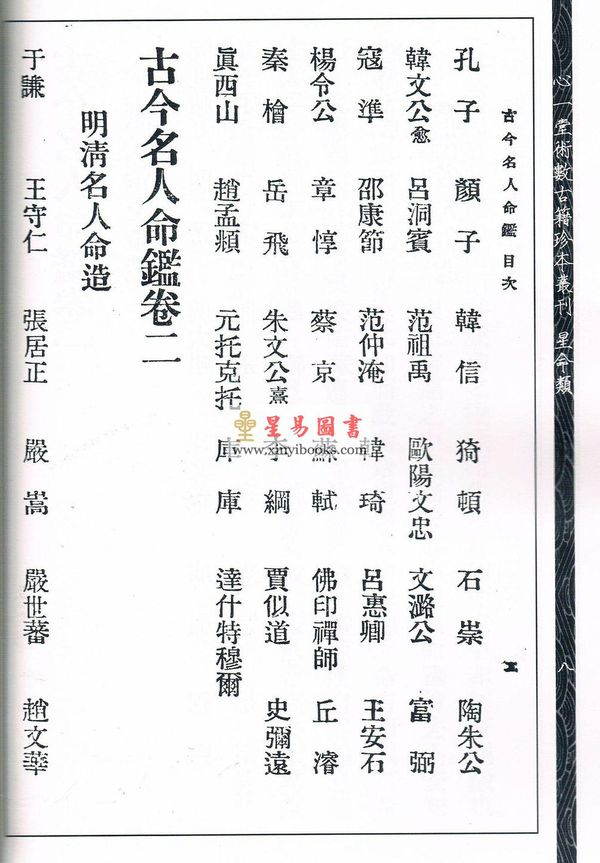 心一堂術數古籍珍本叢刊 星命類
八
古今名人命鑑目次
五
孔子 顏子 韓信 猗頓 石崇 陶朱公
韓文公愈 呂洞賓 范祖禹 歐陽文忠 文潞公 富弼
寇準 邵康節 范仲淹 韓琦 呂惠卿 王安石
楊令公 章惇 蔡京 蘇軾 佛印禪師 丘濬
秦檜 岳飛 朱文公熹 李綱 賈似道 史彌遠
眞西山 趙孟頫 元托克托 庫庫 達什特穆爾
古今名人命鑑卷二
明淸名人命造
于謙 王守仁 張居正 嚴嵩 嚴世蕃 趙文華
星易圖書
www.xinyibooks.com